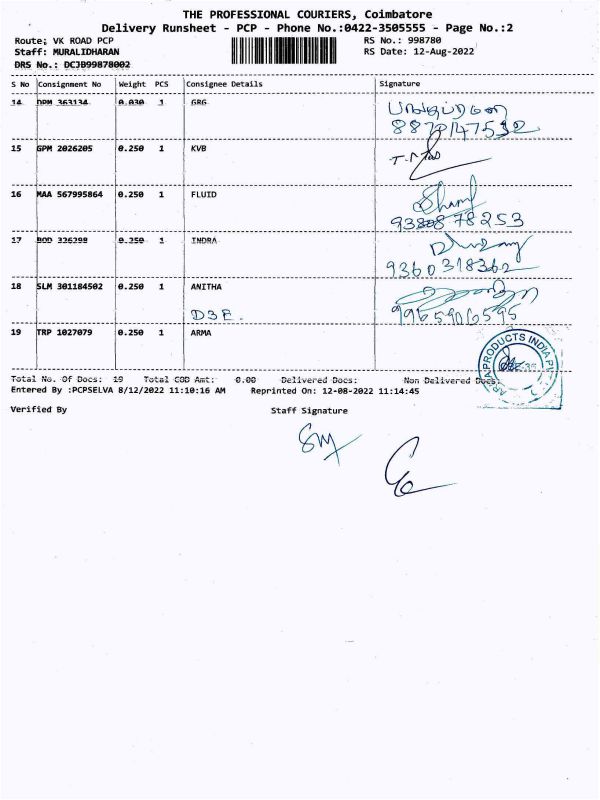 THE PROFESSIONAL COURIERS, Coimbatore
Delivery Runsheet - PCP - Phone No.:0422-3505555 - Page No.:2
Route; VK ROAD PCP RS No.: 998780
Staff: MURALIDHARAN RS Date: 12-Aug-2022
DRS No.: DCJB99878002
S No Consignment No Weight PCS Consignee Details Signature
14 DPM 363134 0.030 1 GRG
8870147532
15 GPM 2026205 0.250 1 KVB
16 MAA 567995864 0.250 1 FLUID
9380878253
17 BOD 326298 0.250 1 INDRA
9360318362
18 SLM 301184502 0.250 1 ANITHA
D3E. 9965906595
19 TRP 1027079 0.250 1 ARMA
PRODUCTS INDIA
Total No. Of Docs: 19 Total COD Amt: 0.00 Delivered Docs: Non Delivered Docs:
Entered By :PCPSELVA 8/12/2022 11:10:16 AM Reprinted On: 12-08-2022 11:14:45
Verified By Staff Signature